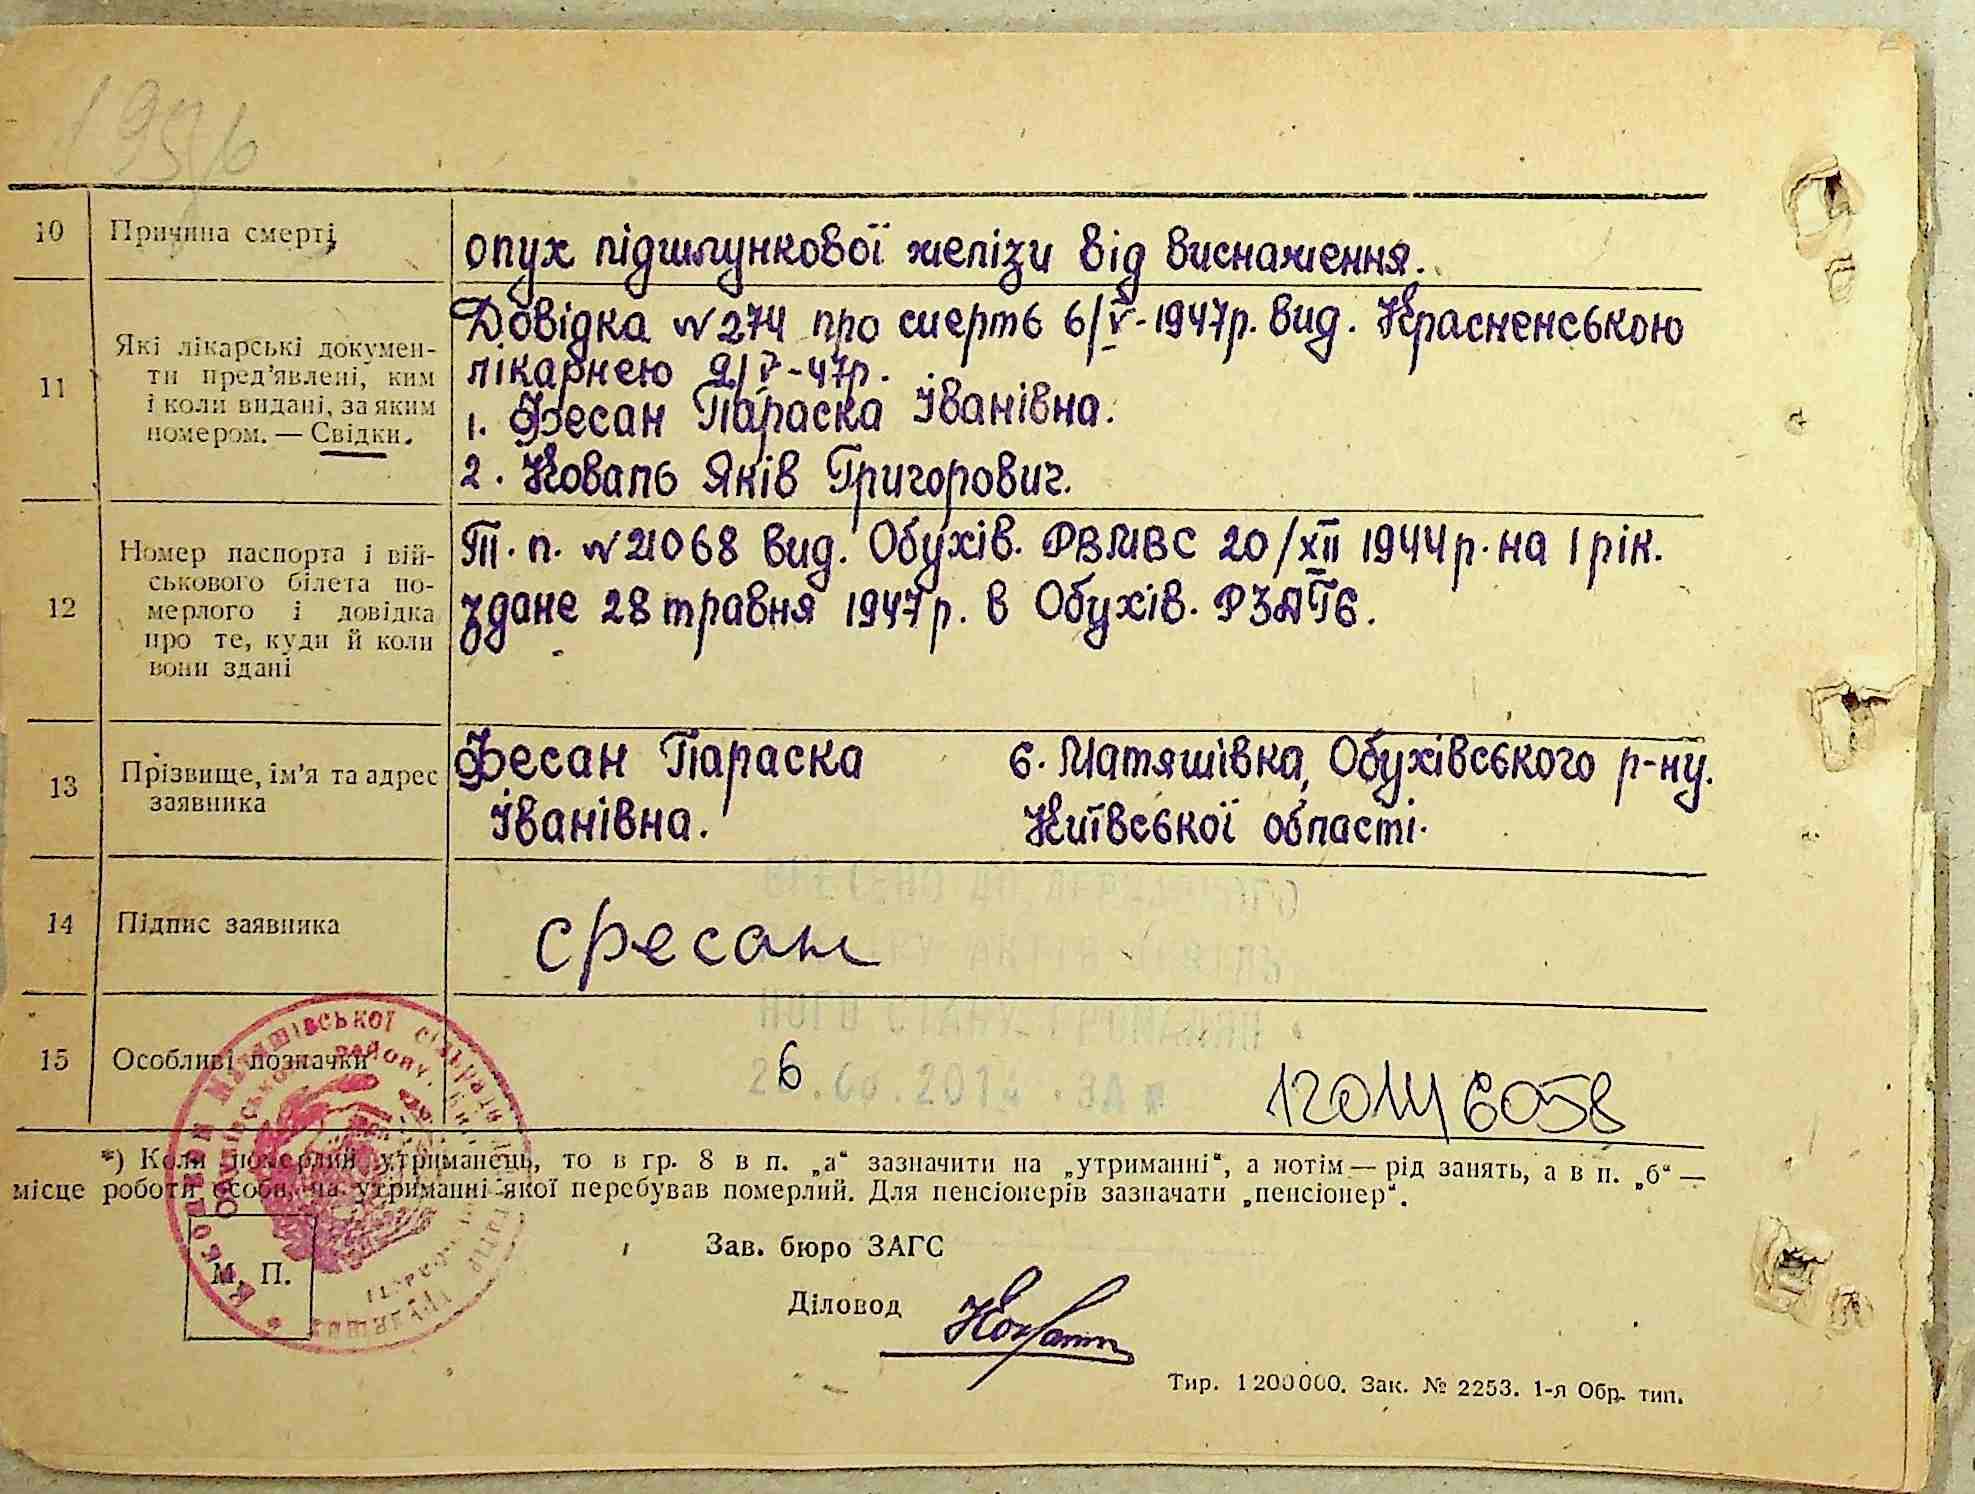 10 Причина смерті опух підшлункової желізи від виснаження.
11 Які лікарські докумен-
ти пред'явлені, ким
і коли видані, за яким
номером. — Свідки.
Довідка N 274 про смерть 6/V-1947р. вид. Красненською
лікарнею 9/V-47р.
1. Фесан Параска Іванівна.
2. Коваль Яків Григорович.
12 Номер паспорта і вій-
ськового білета по-
мерлого і довідка
про те, куди й коли
вони здані
П. п. N 21068 вид. Обухів. РВМВС 20/XII 1944р. на 1 рік.
здане 28 травня 1947р. в Обухів. РЗАГС.
13 Прізвище, ім'я та адрес
заявника
Фесан Параска
Іванівна.
с. Матяшівка, Обухівського р-ну.
Київської області.
14 Підпис заявника Фесан
ВНЕСЕНО ДО ДЕРЖАВНОГО
АКТІВ ЦИВІЛЬ
НОГО СТАНУ ГРОМАДЯН
15 Особливі позначки 6
*) Коли померлий утриманець, то в гр. 8 в п. „а“ зазначити на „утриманні“, а потім — рід занять, а в п. „б“ —
місце роботи особи, на утриманні якої перебував померлий. Для пенсіонерів зазначати „пенсіонер“.
Матяшівської сільради
району
М. П.
Зав. бюро ЗАГС
Діловод
Тир. 1200000. Зак. № 2253. 1-я Обр. тип.